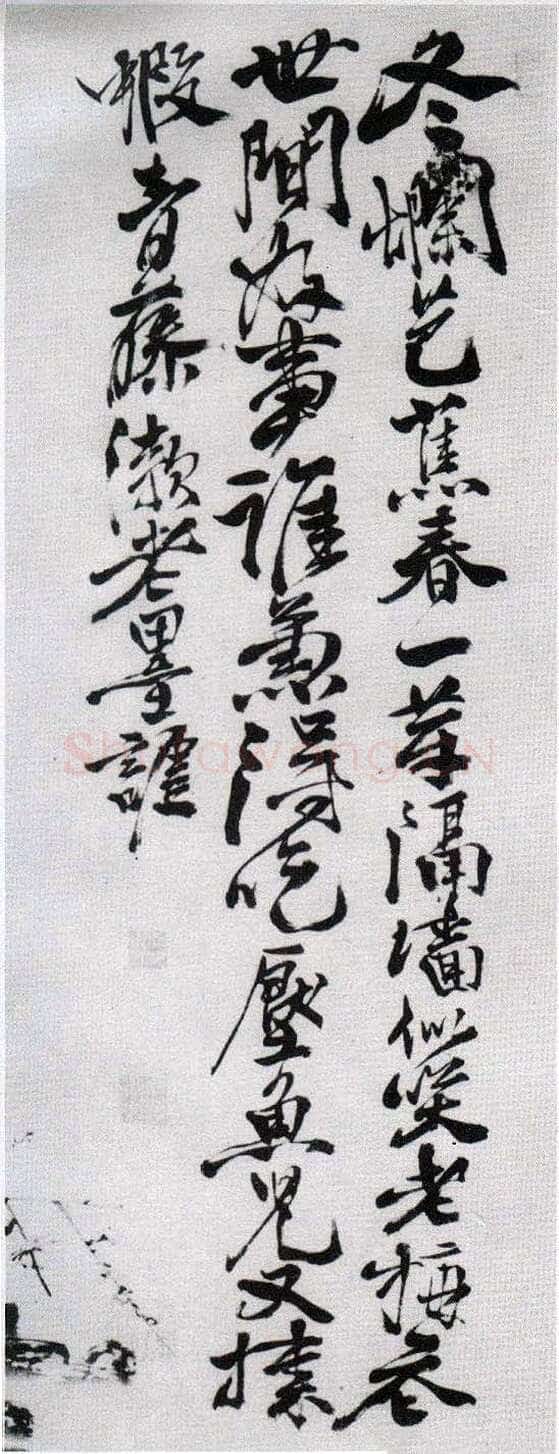 冬爛芭蕉春一芽隔墻似笑老梅
世間好事誰兼得吃壓魚兒又揀
蝦青藤漱老墨謔